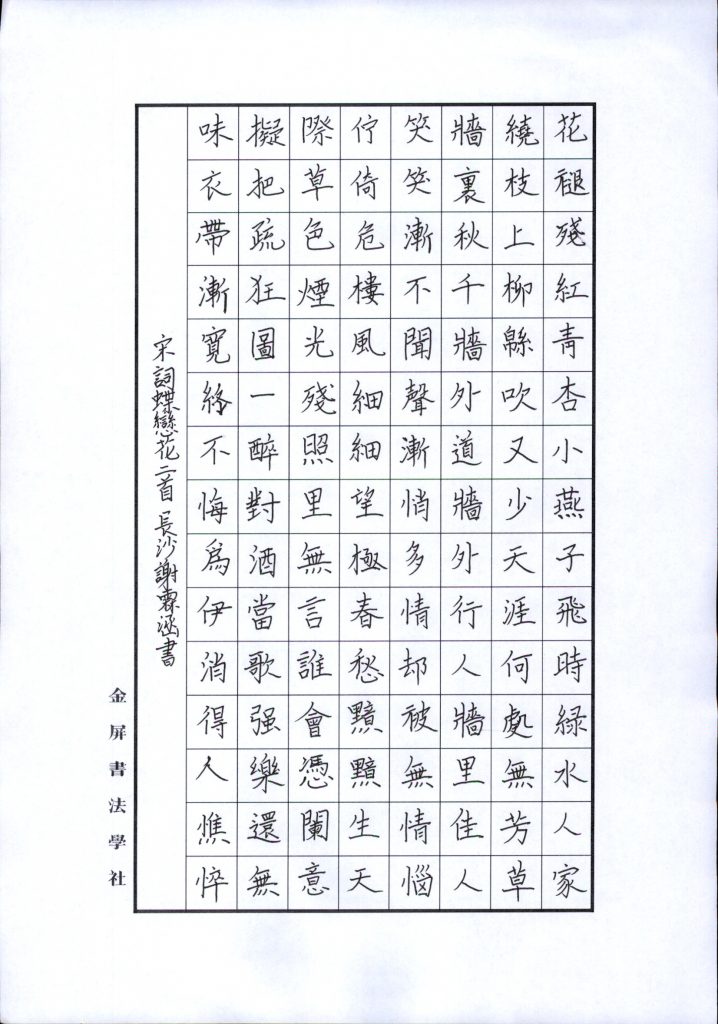 花褪殘紅青杏小燕子飛時緑水人家
繞枝上柳緜吹又少天涯何處無芳草
牆裏秋千牆外道牆外行人牆里佳人
笑笑漸不聞聲漸悄多情却被無情惱
佇倚危樓風細細望極春愁黯黯生天
際草色煙光殘照里無言誰會憑闌意
擬把疏狂圖一醉對酒當歌强樂還無
味衣帶漸寬終不悔爲伊消得人憔悴
宋詞蝶戀花二首 長沙謝霖涵書
金屏書法學社